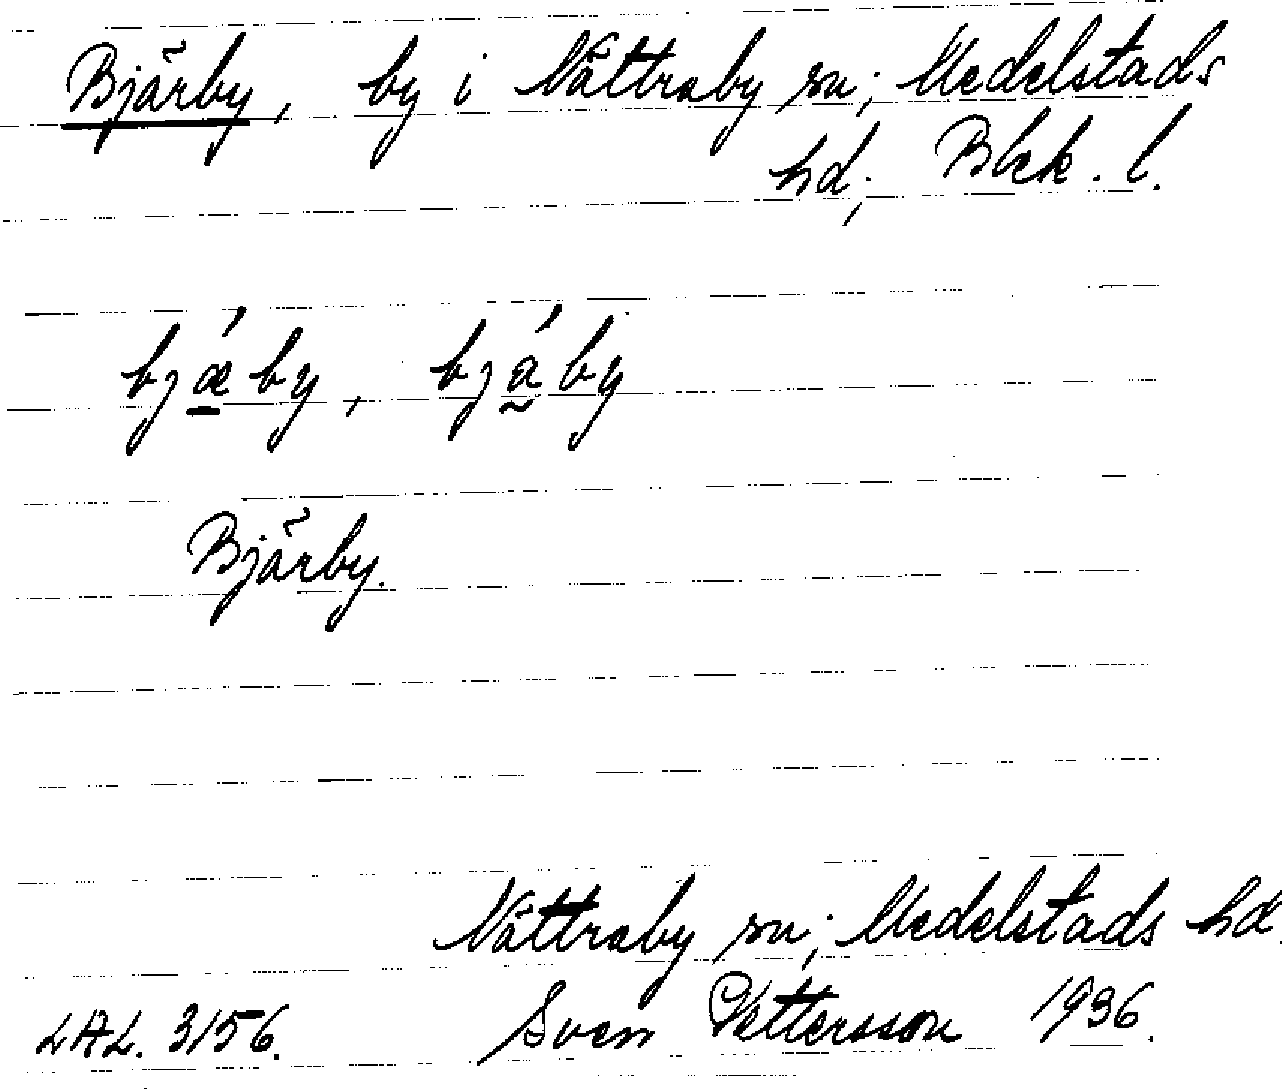 Bjärby, by i Nättraby sn; Medelstads
hd; Blek. l.
bjǽby, bjáby
Bjärby.
Nättraby sn; Medelstads hd.
LAL. 3156. Sven Pettersson 1936.